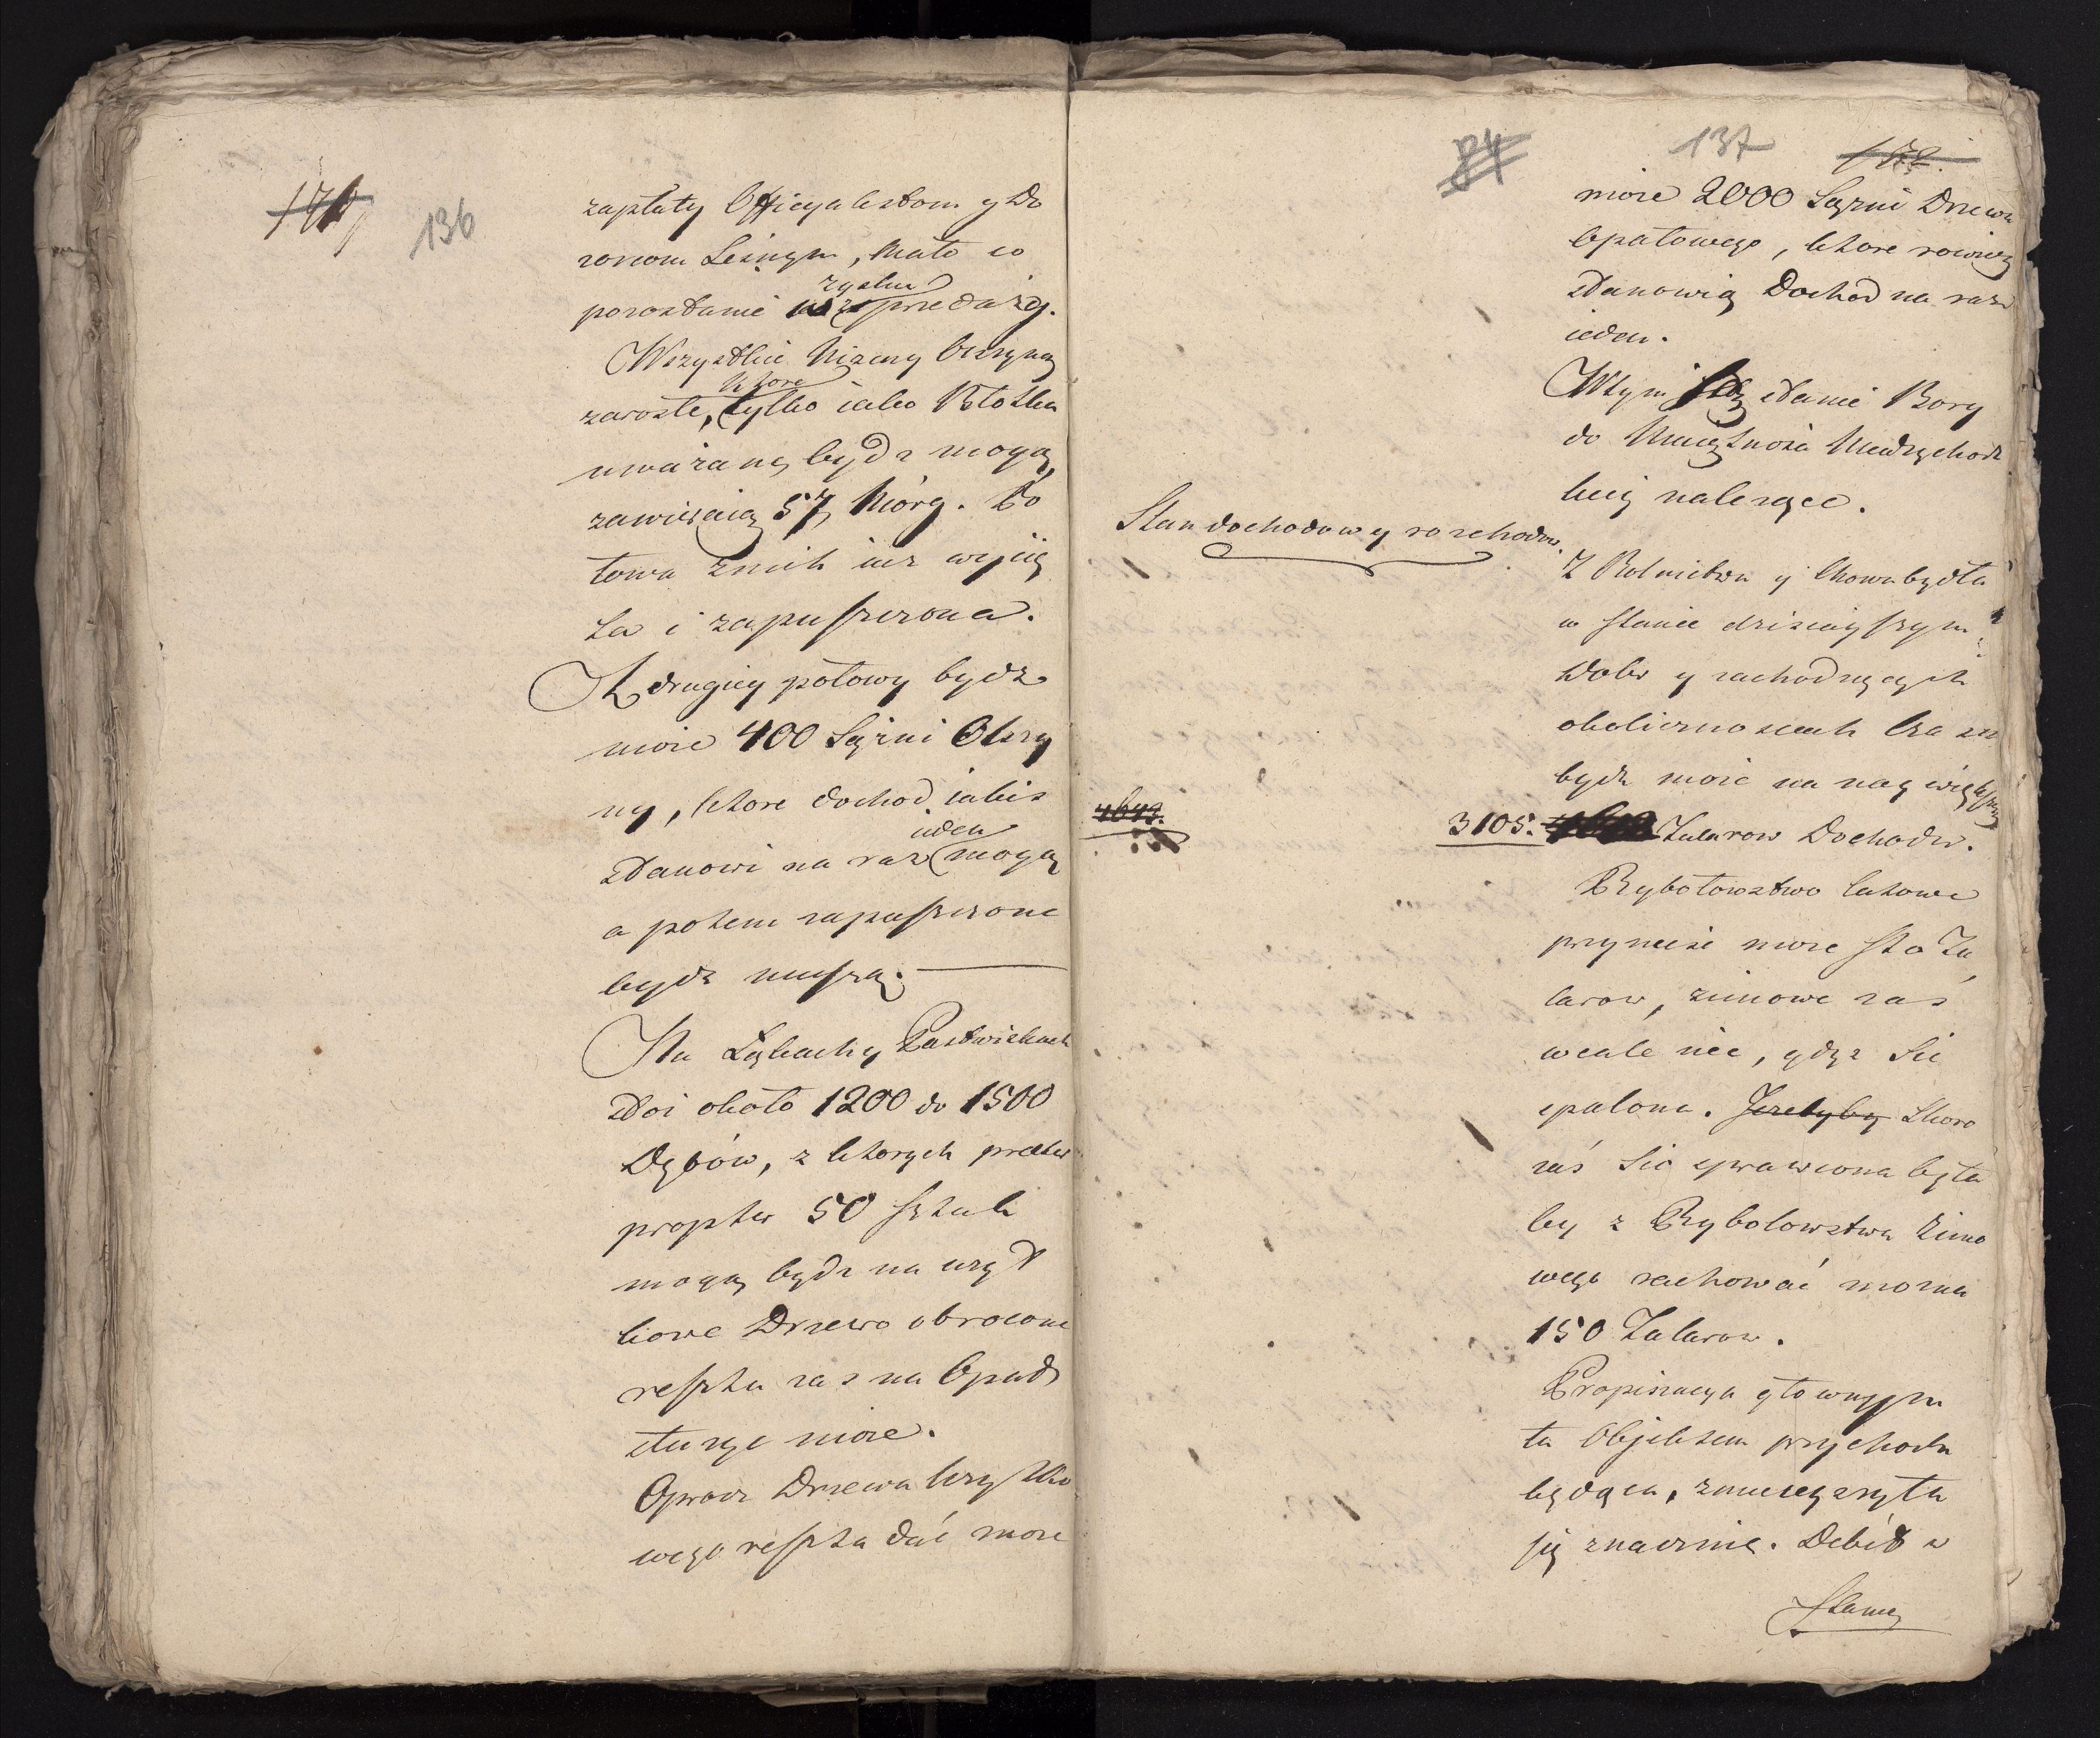 136
zapłaty Officyalistom y Do
zorcom Leśnym, mało co
zysku
pozostanie z przedaży.
Wszystkie Niziny Olszyną
które
zarosłe, tylko iako Błotka
uważane bydz mogą
zawieraią 57 Mórg. Po
łowa znich iuż wycię
ta i zapuszczona.
Z drugiey połowy bydz
może 400 Sążni Olszy
ny, ktore dochod iakiś
ieden
stanowi na raz mogą
a potem zapuszczone
bydz muszą.
Na Łąkach y Pastwiskach
stoi około 1200 do 1500
Dębów, z ktorych praeter
propter 50 sztuk
mogą bydz na użyt
kowe Drzewo obrocone
reszta zas na Opad
służyc może.
Oprocz Drzewa Użytko
wego reszta dać może
84
137
może 2000 Sążni Drzewa
opałowego, ktore rownież
stanowią Dochod na raz
ieden.
Wtym są stanie Bory
do Maiętnosci Miedzychodz
kiey należące.
Stan dochodow y rozchodow.
Z Rolnictwa y Chowu bydła
w stanie dzisieyszym
Dobr y zachodzących
okolicznosciach Czasu
bydz może na naywiększy
4643.
3105. Talarow Dochodu.
Rybołowstwo latowe
przynieść może sto Ta
larow, zimowe zaś
wcale nic, gdyż Sić
spalona. Jezeliby Skoro
zaś Sić sprawiona była
by z Rybołowstwa Zimo
wego rachować można
150 Talarow.
Propinacya głownym
tu Objektem przychodu
będąca, zmnieyszyła
się znacznie. Debit w
Stanie